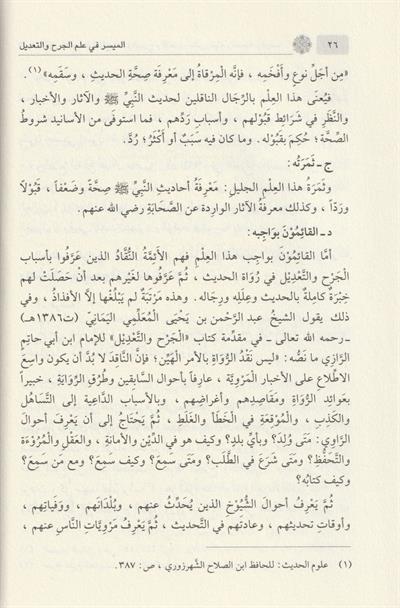 ٢٦ الميسر في علم الجرح والتعديل
«مِن أجَلِّ نوعٍ وأَفْخَمِه ، فإنَّه المِرْقاةُ إلى مَعْرِفَةِ صِحَّةِ الحديثِ ، وسَقَمِه »(١).
فيُعنَى هذا العِلْم بالرِّجَال الناقلين لحديث النَّبِيِّ ﷺ والآثار والأخبار ،
والنَّظَرِ في شَرائطِ قَبُولهم ، وأسبابِ رَدِّهم ، فما استوفى من الأسانيد شروطَ
الصِّحَّة؛ حُكِمَ بقَبُولِه . وما كان فيه سَبَبٌ أو أكْثَرُ؛ رُدَّ.
ج ـ ثَمَرَتُه :
وثَمَرَةُ هذا العِلمِ الجليلِ: مَعْرِفَةُ أحاديثِ النَّبِيِّ ﷺ صِحَّةً وضَعْفاً ، قَبُولاً
ورَدّاً ، وكذلك معرفةُ الآثار الوارِدة عن الصَّحَابَةِ رضي الله عنهم.
د ـ القائِمُوْنَ بوَاجِبِه :
أمَّا القائِمُوْنَ بواجِبِ هذا العِلْمِ فهم الأَئِمَّةُ النُّقَّادُ الذين عَرَفُوا بأسبابِ
الجَرْحِ والتَّعْدِيْلِ في رُوَاةِ الحديث ، ثُمَّ عَرَّفوها لغَيْرِهم بعد أنْ حَصَلَتْ لهم
خِبْرَةٌ كامِلةٌ بالحديثِ وعِلَلِه ورِجَالِه . وهذه مَرْتَبَةٌ لم يَبْلُغْها إلاَّ الأفذاذُ ، وفي
ذلك يقول الشيخُ عبد الرَّحْمن بن يَحْيَى المُعَلِّمي اليَمَانِيّ (ت١٣٨٦هـ)
ـ رحمه الله تعالى ـ في مقدِّمة كتاب «الجَرْح والتَّعْدِيْل» للإمام ابن أبي حاتِم
الرَّازي ما نَصُّه : «ليس نَقْدُ الرُّواةِ بالأمرِ الهَيِّن؛ فإنَّ النَّاقِدَ لا بُدَّ أن يكون واسِعَ
الاطِّلاع على الأخبار المَرْوِيَّة ، عارِفاً بأحوال السَّابِقين وطُرُقِ الرِّوَايَةِ ، خبيراً
بعَوائِدِ الرُّوَاةِ ومَقاصِدِهم وأغراضِهم ، وبالأسبابِ الدَّاعيةِ إلى التَّسَاهُل
والكَذِبِ ، والمُوْقِعَةِ في الخَطَأ والغَلَطِ ، ثُمَّ يَحْتاجُ إلى أن يَعْرِفَ أحوالَ
الرَّاوِي: مَتَى وُلِدَ؟ وبأيِّ بلدٍ؟ وكيف هو في الدِّيْنِ والأمانةِ ، والعَقْلِ والمُرُوْءَةِ
والتَّحَفُّظِ؟ ومَتَى شَرَعَ في الطَّلَب؟ ومَتَى سَمِعَ؟ وكيف سَمِعَ؟ ومع مَن سَمِعَ؟
وكيف كتابُه؟
ثُمَّ يَعْرِف أحوالَ الشُّيُوْخِ الذين يُحَدِّثُ عنهم ، وبُلْدَانَهم ، ووَفَياتِهم ،
وأوقاتِ تحديثِهم ، وعادتَهم في التَّحديث ، ثُمَّ يَعْرِفُ مَرْوِيَّاتِ النَّاسِ عنهم ،
(١) علوم الحديث : للحافظ ابن الصلاح الشَّهرزوري ، ص : ٣٨٧.